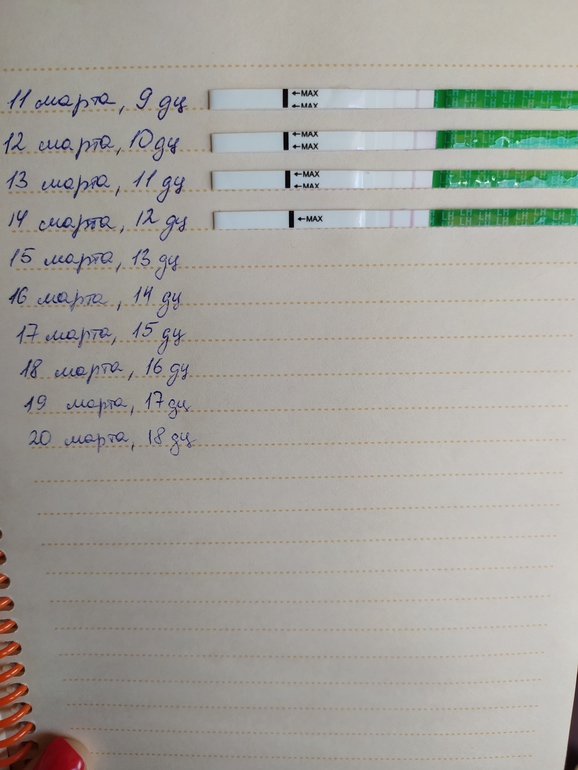 11 марта, 9 дц ←MAX
←MAX
12 марта, 10 дц ←MAX
←MAX
13 марта, 11 дц ←MAX
←MAX
14 марта, 12 дц ←MAX
15 марта, 13 дц
16 марта, 14 дц
17 марта, 15 дц
18 марта, 16 дц
19 марта, 17 дц
20 марта, 18 дц